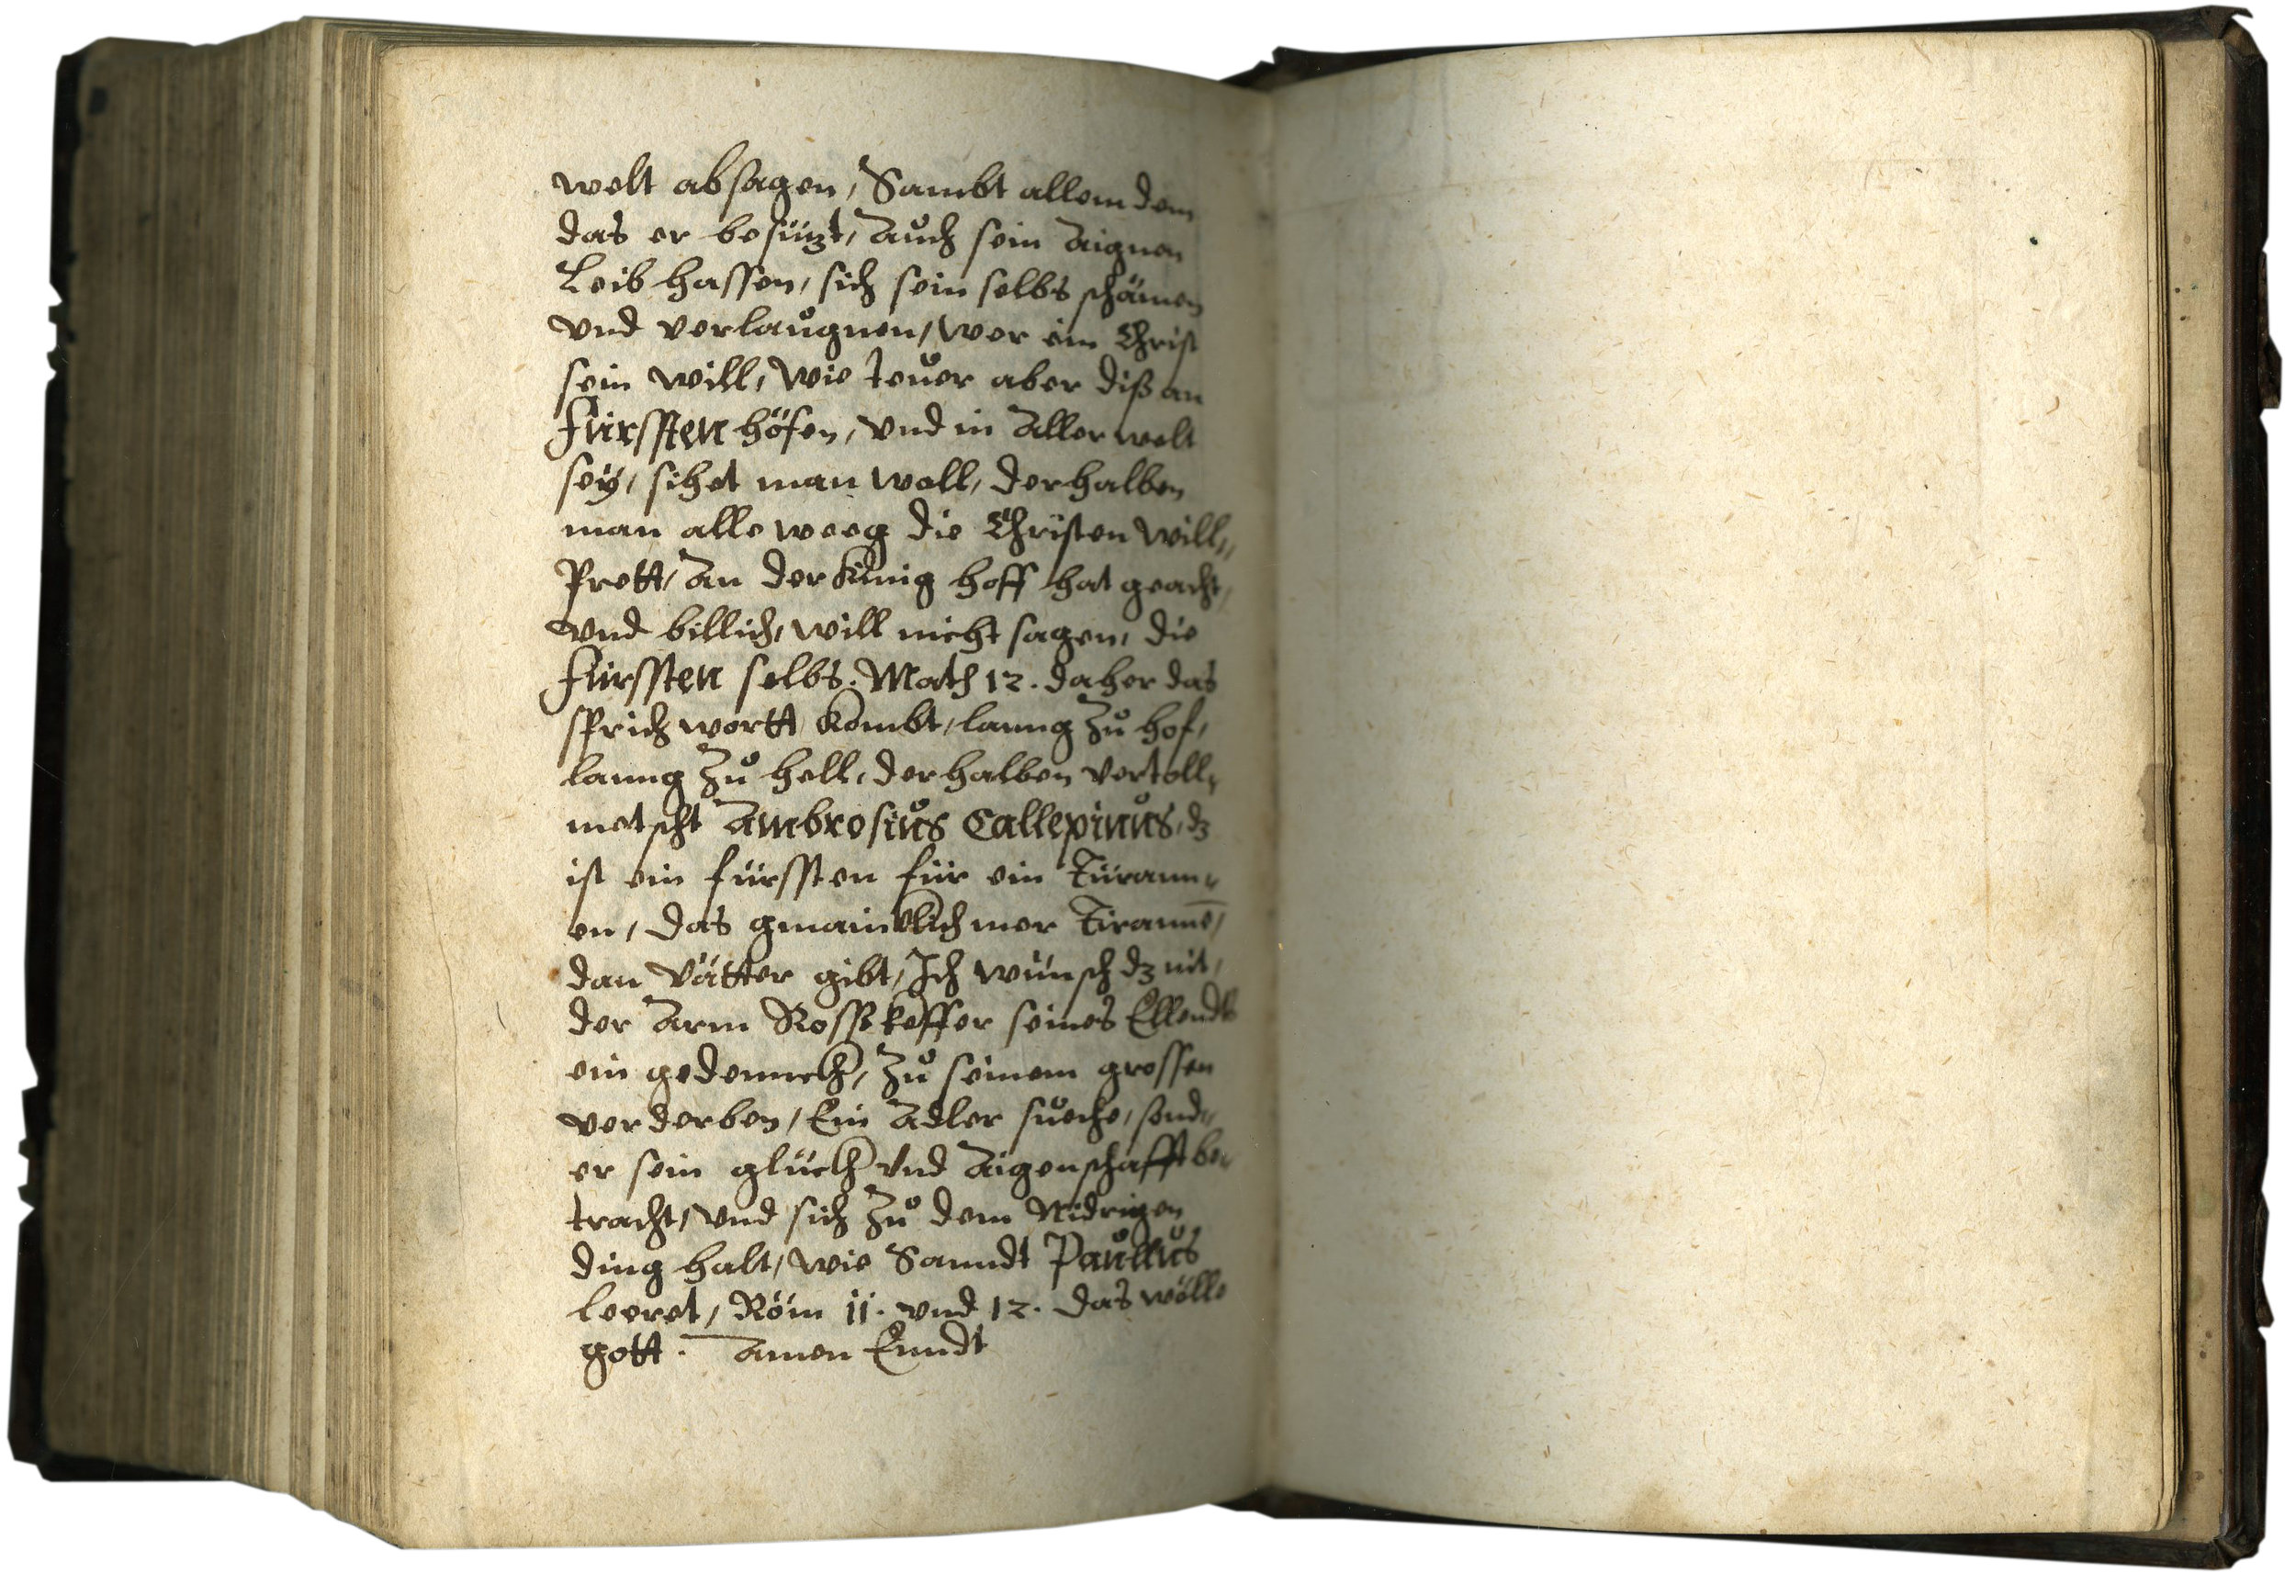 welt absagen, Sambt allem dem
das er besüizt, Auch sein Aignen
Leib hassen, sich sein selbs schämen
vnd verlaůgnen, wer ein Christ
sein will, Wie teůer aber diß an
Fürssten höfen, vnd in Aller welt
seÿ, sihet man woll, derhalben
man alle weeg die Christen will,,
Prett, An der Künig hoff hat geacht,
vnd billich, will nicht sagen, die
Fürssten selbs. Math 12. daher das
sprich wortt kombt, lanng Zů hof,
lanng Zů hell, derhalben vertoll,,
metscht Ambrosiůs Callepinůs, dz
ist ein fürssten für ein Türann,,
en, das gmainklich mer Tirannē,
dan Vätter gibt, Ich wünsch dz nit,
der Arm Rosskeffer seines Ellendts
ein gedennckh, Zů seinem grossen
verderben, Ein Adler sůeche, sond,,
er sein glückh vnd Aigenschafft be,,
tracht, vnd sich Zů dem Nidrigen
ding halt, wie Sanndt Paůllůs
leeret, Röm 11. vnd 12. das wölle
gott. Amen Enndt